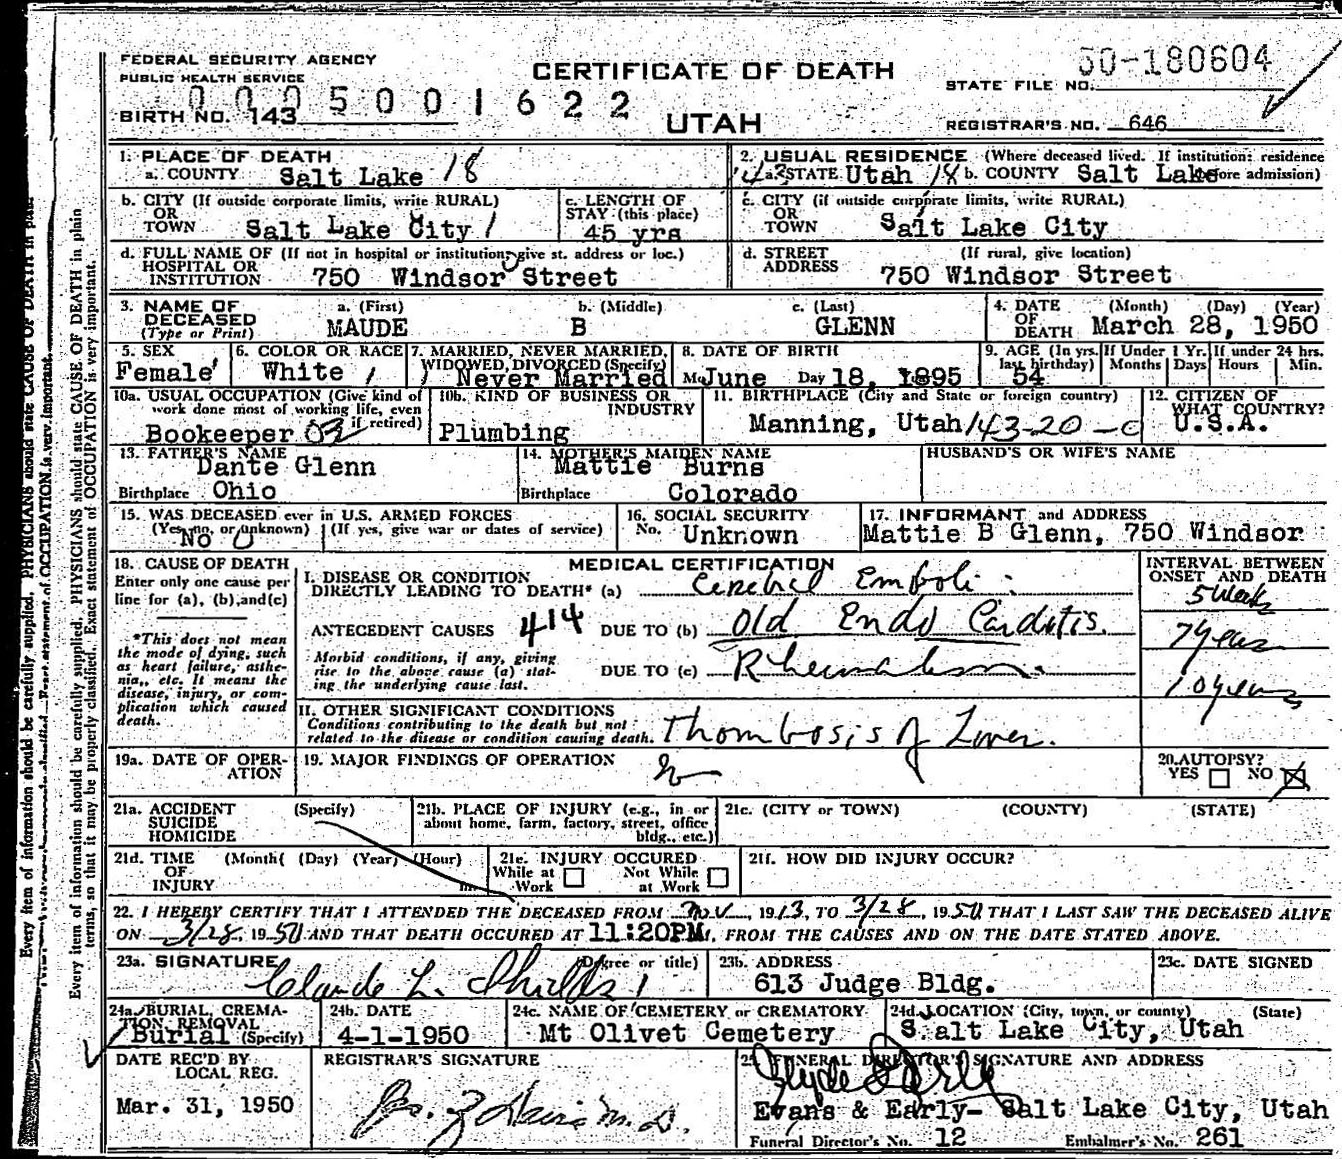 FEDERAL SECURITY AGENCY
PUBLIC HEALTH SERVICE
CERTIFICATE OF DEATH
50-180604
STATE FILE NO.
0005001622
BIRTH NO. 143
UTAH
REGISTRAR'S NO. 646
1. PLACE OF DEATH
a. COUNTY Salt Lake 18
2. USUAL RESIDENCE (Where deceased lived. If institution: residence
43 a. STATE Utah 18 b. COUNTY Salt Lake before admission)
b. CITY (If outside corporate limits, write RURAL)
OR
TOWN Salt Lake City 1
c. LENGTH OF
STAY (this place)
45 yrs
c. CITY (if outside corporate limits, write RURAL)
OR
TOWN Salt Lake City
d. FULL NAME OF (If not in hospital or institution, give st. address or loc.)
HOSPITAL OR
INSTITUTION 750 Windsor Street
d. STREET (If rural, give location)
ADDRESS
750 Windsor Street
3. NAME OF DECEASED
(Type or Print)
a. (First) b. (Middle) c. (Last)
MAUDE B GLENN
4. DATE OF DEATH (Month) (Day) (Year)
March 28, 1950
5. SEX
Female
6. COLOR OR RACE
White
7. MARRIED, NEVER MARRIED,
WIDOWED, DIVORCED (Specify)
Never Married
8. DATE OF BIRTH
Mo June Day 18, 1895
9. AGE (In yrs. last birthday)
54
If Under 1 Yr.
Months Days
If under 24 hrs.
Hours Min.
10a. USUAL OCCUPATION (Give kind of
work done most of working life, even
if retired)
Bookeeper 03
10b. KIND OF BUSINESS OR
INDUSTRY
Plumbing
11. BIRTHPLACE (City and State or foreign country)
Manning, Utah 143-20-0
12. CITIZEN OF
WHAT COUNTRY?
U.S.A.
13. FATHER'S NAME
Dante Glenn
Birthplace Ohio
14. MOTHER'S MAIDEN NAME
Mattie Burns
Birthplace Colorado
HUSBAND'S OR WIFE'S NAME
15. WAS DECEASED ever in U.S. ARMED FORCES
(Yes, no, or unknown) (If yes, give war or dates of service)
No
16. SOCIAL SECURITY
No. Unknown
17. INFORMANT and ADDRESS
Mattie B Glenn, 750 Windsor
18. CAUSE OF DEATH
Enter only one cause per
line for (a), (b), and (c)
*This does not mean
the mode of dying, such
as heart failure, asthe-
nia, etc. It means the
disease, injury, or com-
plication which caused
death.
MEDICAL CERTIFICATION
I. DISEASE OR CONDITION
DIRECTLY LEADING TO DEATH* (a) Cerebral Emboli
ANTECEDENT CAUSES 414
DUE TO (b) Old Endo Carditis.
Morbid conditions, if any, giving
rise to the above cause (a) stat-
ing the underlying cause last.
DUE TO (c) Rheumatism.
II. OTHER SIGNIFICANT CONDITIONS
Conditions contributing to the death but not
related to the disease or condition causing death.
Thombosis of Liver.
INTERVAL BETWEEN
ONSET AND DEATH
5 weeks
7 years
10 years
19a. DATE OF OPER-
ATION
19. MAJOR FINDINGS OF OPERATION
20. AUTOPSY?
YES NO
21a. ACCIDENT (Specify)
SUICIDE
HOMICIDE
21b. PLACE OF INJURY (e.g., in or
about home, farm, factory, street, office
bldg., etc.)
21c. (CITY or TOWN) (COUNTY) (STATE)
21d. TIME (Month) (Day) (Year) (Hour)
OF
INJURY m.
21e. INJURY OCCURED
While at Work Not While at Work
21f. HOW DID INJURY OCCUR?
22. I HEREBY CERTIFY THAT I ATTENDED THE DECEASED FROM Nov, 1913, TO 3/28, 1950 THAT I LAST SAW THE DECEASED ALIVE
ON 3/28, 1950 AND THAT DEATH OCCURED AT 11:20PM, FROM THE CAUSES AND ON THE DATE STATED ABOVE.
23a. SIGNATURE (Degree or title)
Claude L. Shields
23b. ADDRESS
613 Judge Bldg.
23c. DATE SIGNED
24a. BURIAL, CREMA-
TION, REMOVAL
(Specify)
Burial
24b. DATE
4-1-1950
24c. NAME OF CEMETERY or CREMATORY
Mt Olivet Cemetery
24d. LOCATION (City, town, or county) (State)
Salt Lake City, Utah
DATE REC'D BY
LOCAL REG.
Mar. 31, 1950
REGISTRAR'S SIGNATURE
M.D.
25. FUNERAL DIRECTOR'S SIGNATURE AND ADDRESS
Evans & Early- Salt Lake City, Utah
Funeral Director's No. 12 Embalmer's No. 261
Every item of information should be carefully supplied. PHYSICIANS should state CAUSE OF DEATH in plain
terms, so that it may be properly classified. Exact statement of OCCUPATION is very important.